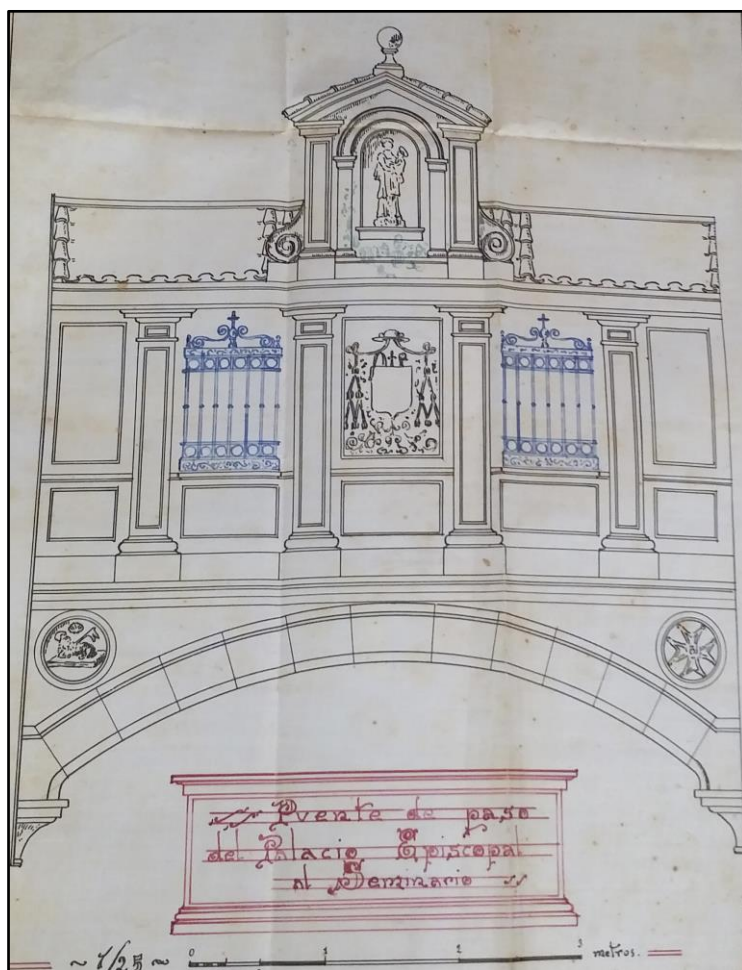 Puente de paso
del Palacio Episcopal
al Seminario
~ 1/25 ~ 0 1 2 3 metros.